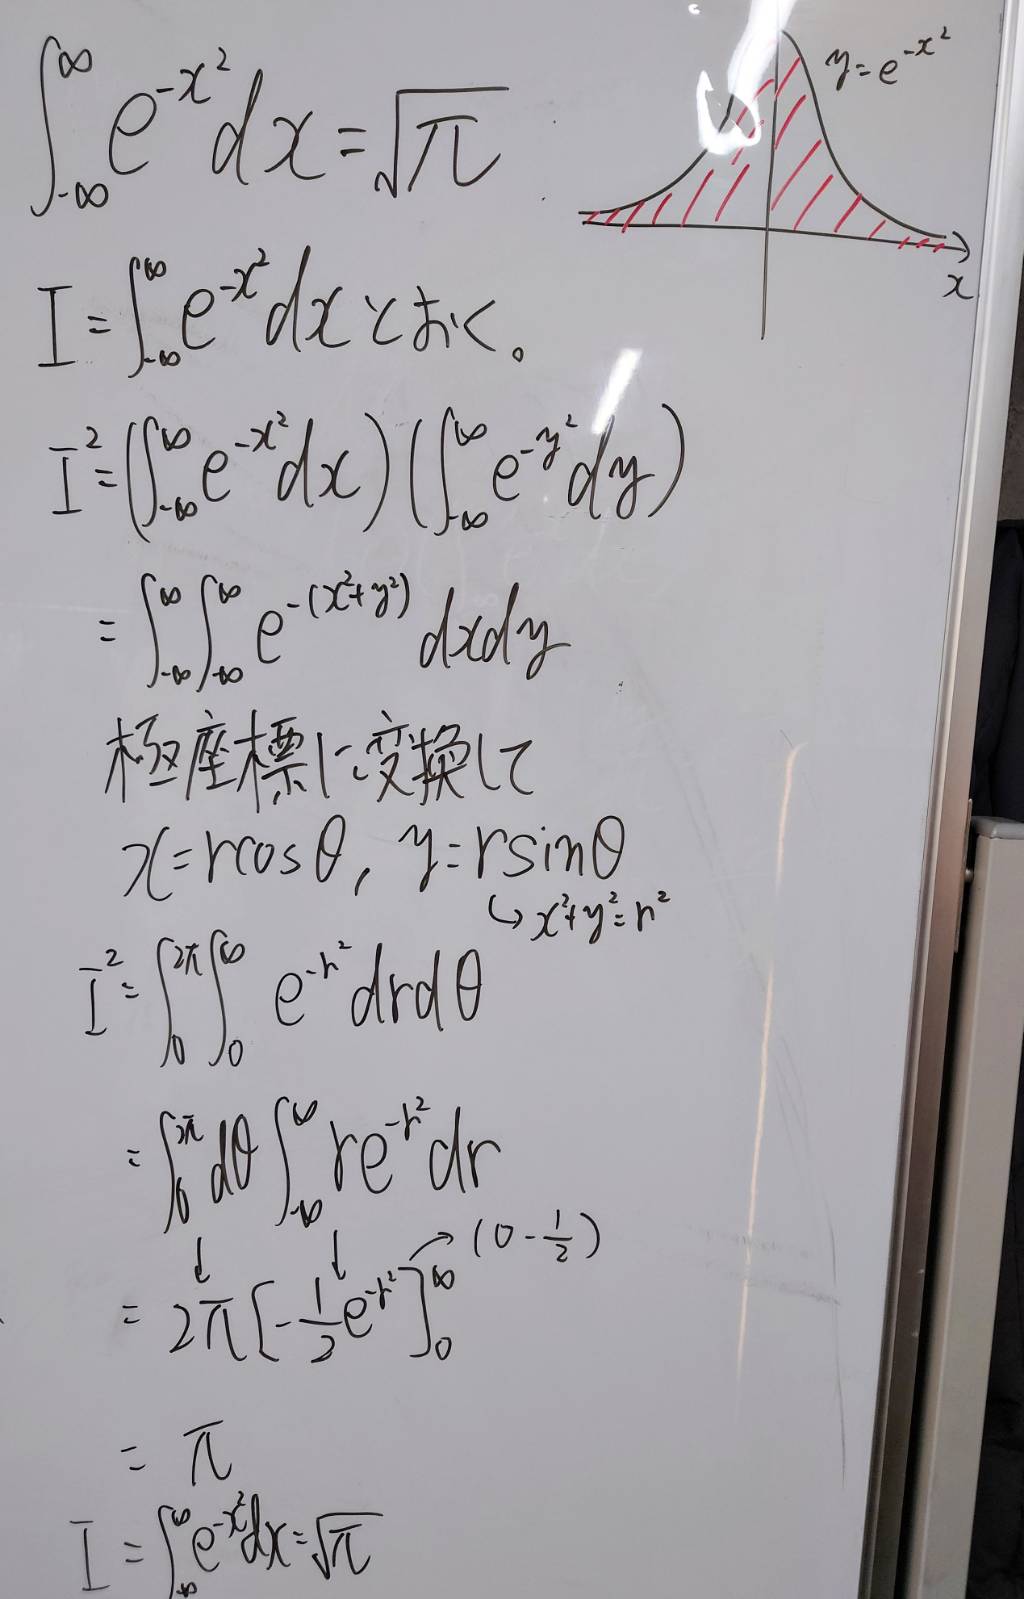 ∫_{-∞}^{∞} e^{-x²} dx = √π
y = e^{-x²}
x
I = ∫_{-∞}^{∞} e^{-x²} dx とおく。
I² = (∫_{-∞}^{∞} e^{-x²} dx) (∫_{-∞}^{∞} e^{-y²} dy)
= ∫_{-∞}^{∞} ∫_{-∞}^{∞} e^{-(x²+y²)} dxdy
極座標に変換して
x = rcosθ, y = rsinθ
↳ x²+y² = r²
I² = ∫_{0}^{2π} ∫_{0}^{∞} e^{-r²} drdθ
= ∫_{0}^{2π} dθ ∫_{-∞}^{∞} re^{-r²} dr
↓ ↓ → (0 - 1/2)
= 2π [-1/2 e^{-r²}]_{0}^{∞}
= π
I = ∫_{-∞}^{∞} e^{-x²} dx = √π